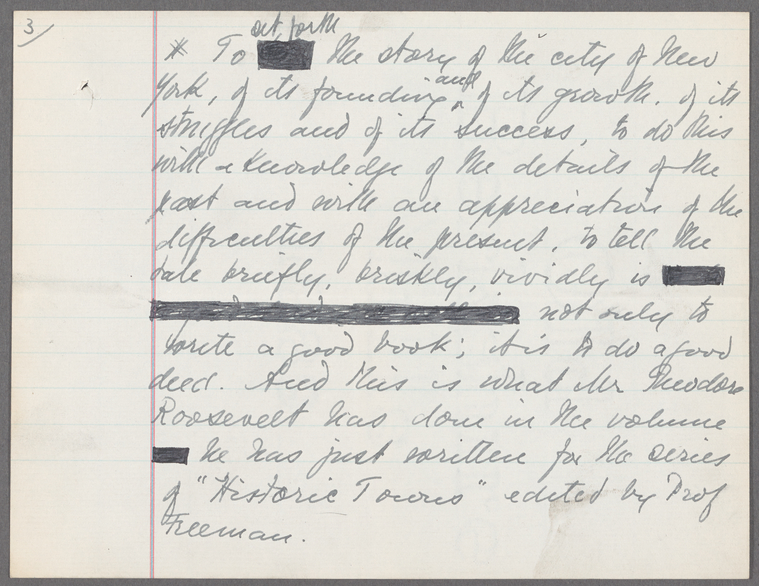 3/
set forth
* To the story of the city of New
York, of its founding and of its growth, of its
struggles and of its success, to do this
with a knowledge of the details of the
past and with an appreciation of the
difficulties of the present, to tell the
tale briefly, briskly, vividly is
not only to
write a good book; it is to do a good
deed. And this is what Mr Theodore
Roosevelt has done in the volume
he has just written for the series
of "Historic Towns" edited by Prof
Freeman.